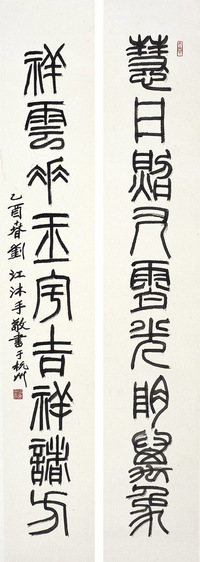 慧日照九霄光明萬象
祥雲玉宇吉祥諸方
乙酉春劉江沐手敬書于杭州